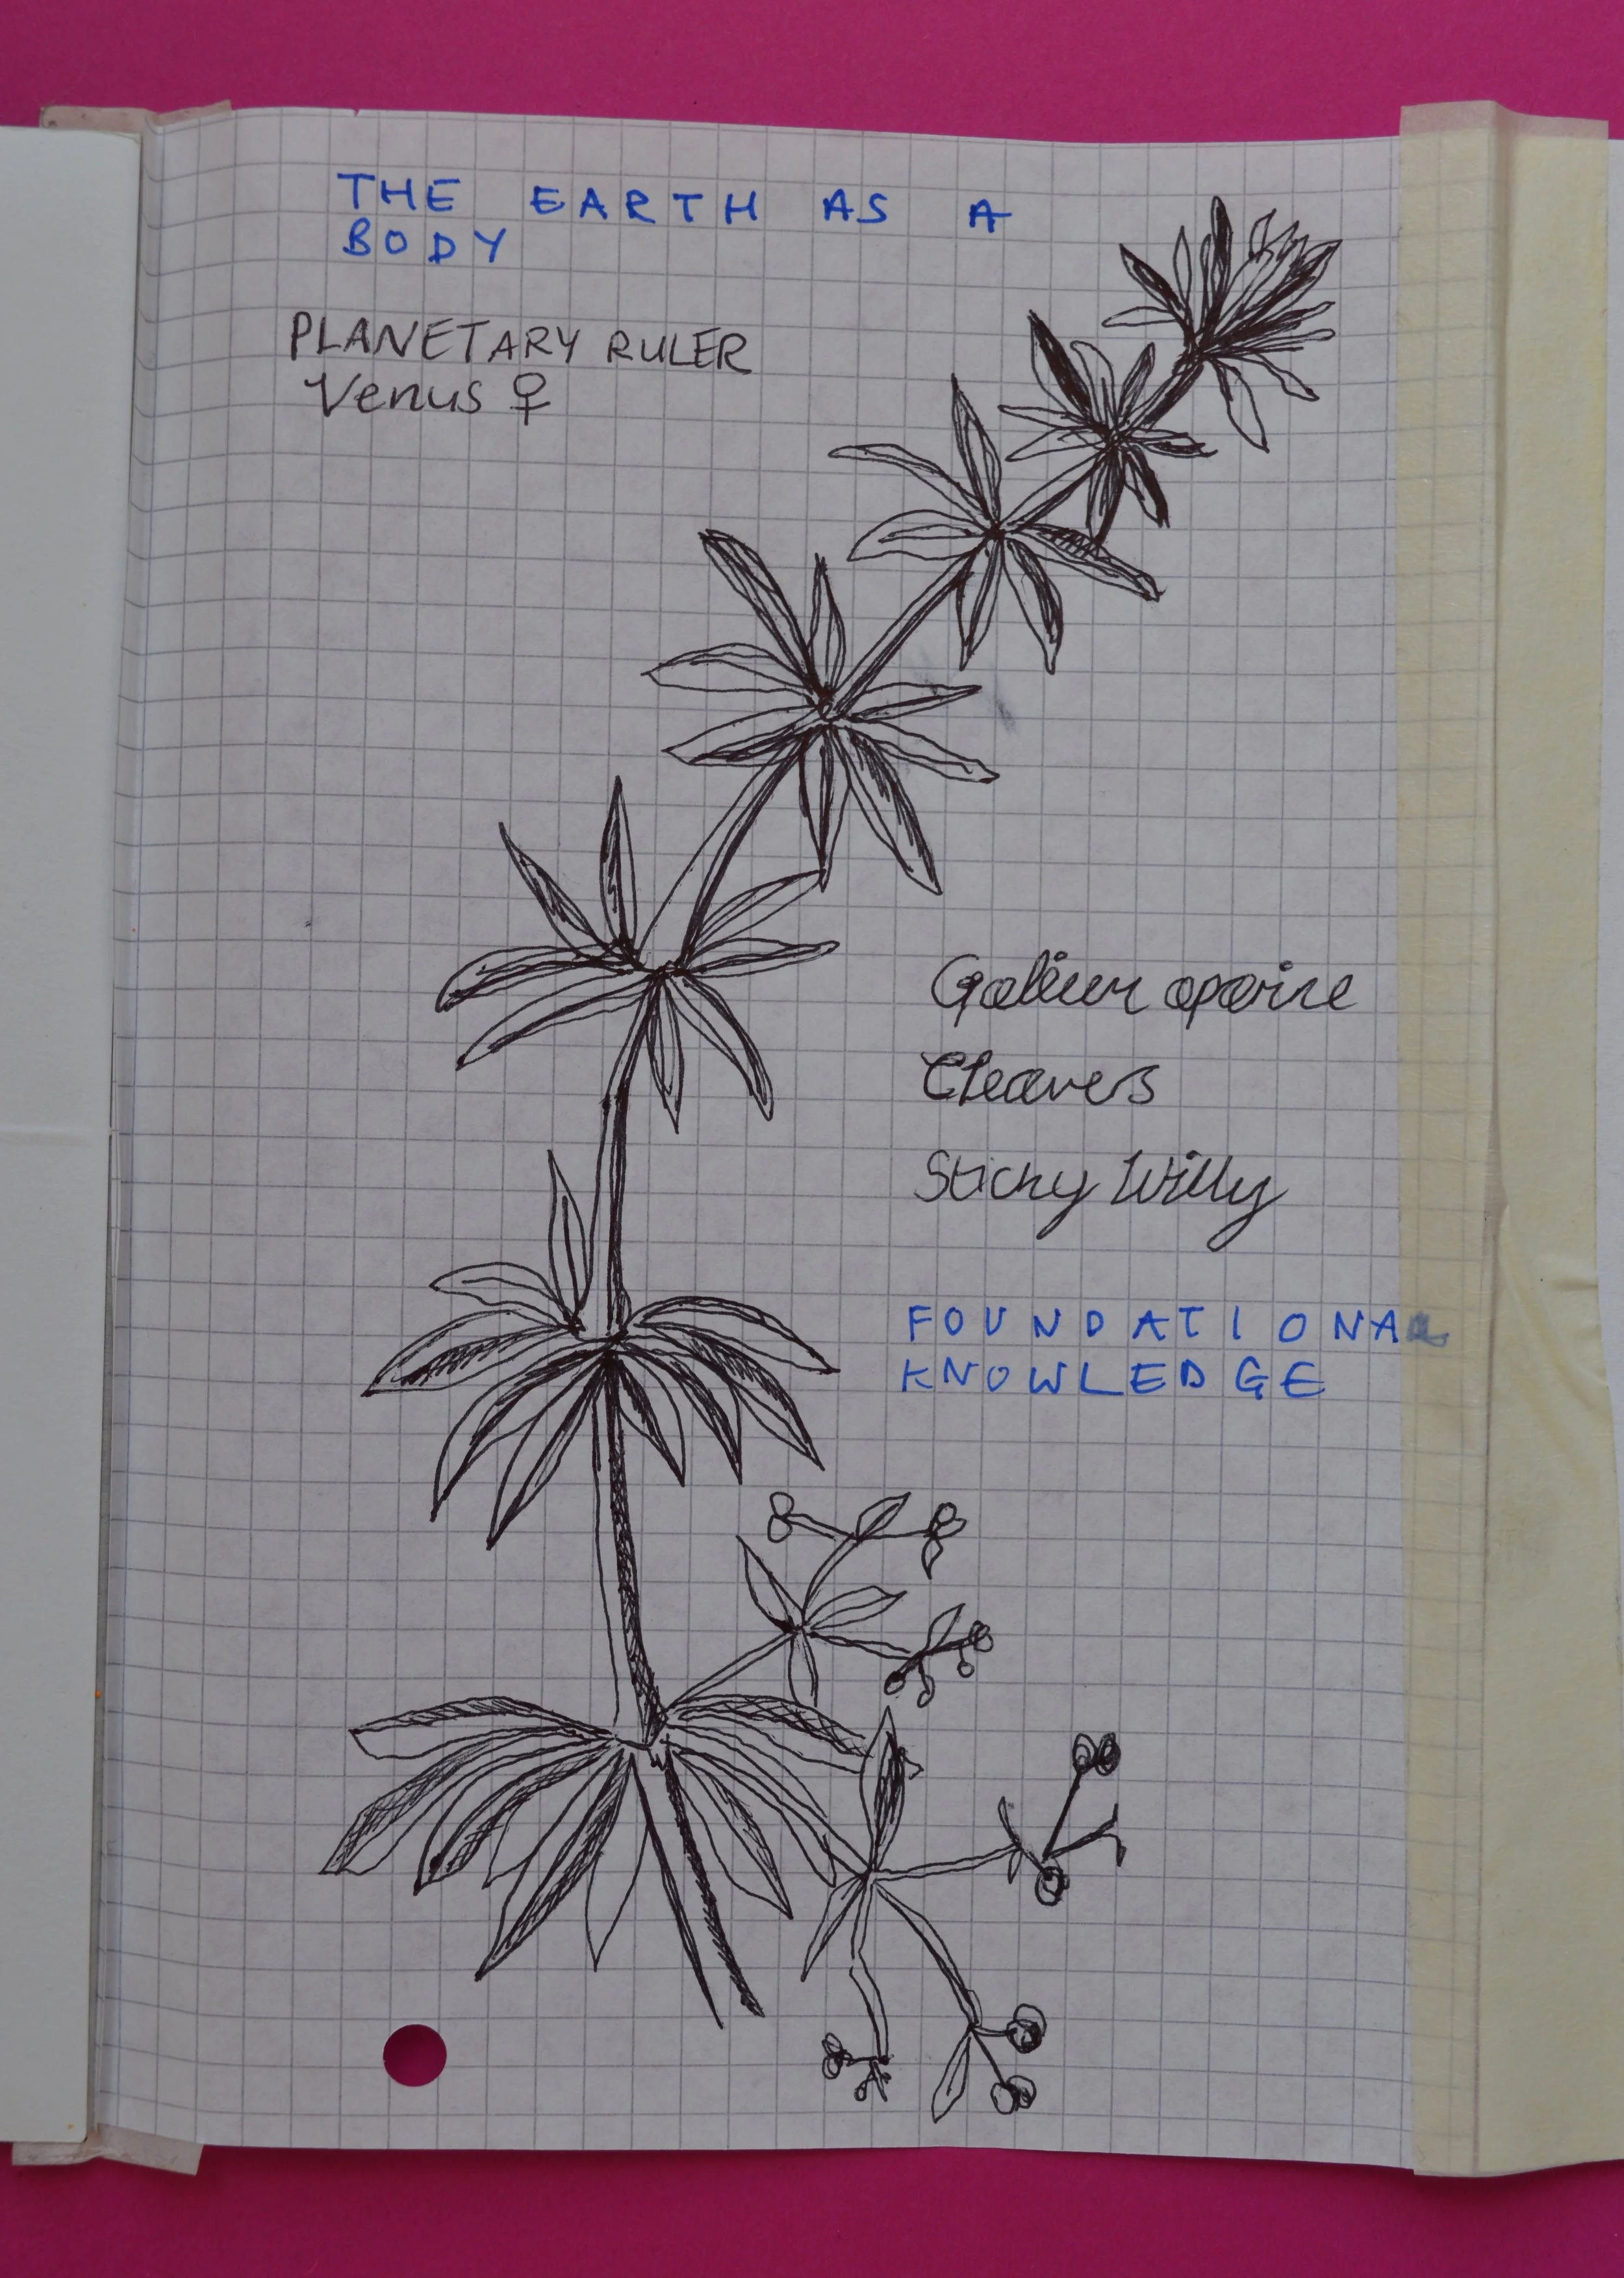 THE EARTH AS A
BODY
PLANETARY RULER
Venus ♀
Galium aparine
Cleavers
Sticky Willy
FOUNDATIONAL
KNOWLEDGE